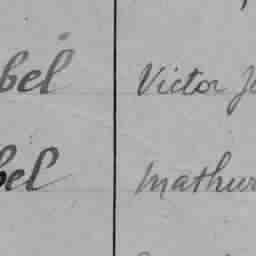 bel Victor J
bel Mathur